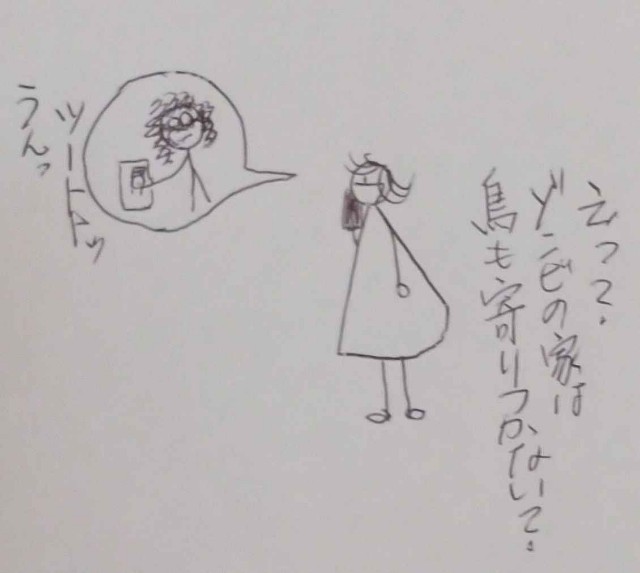 えって?
ゾンビの家は
鳥も寄りつかないって?
ツートトッ
うんっ